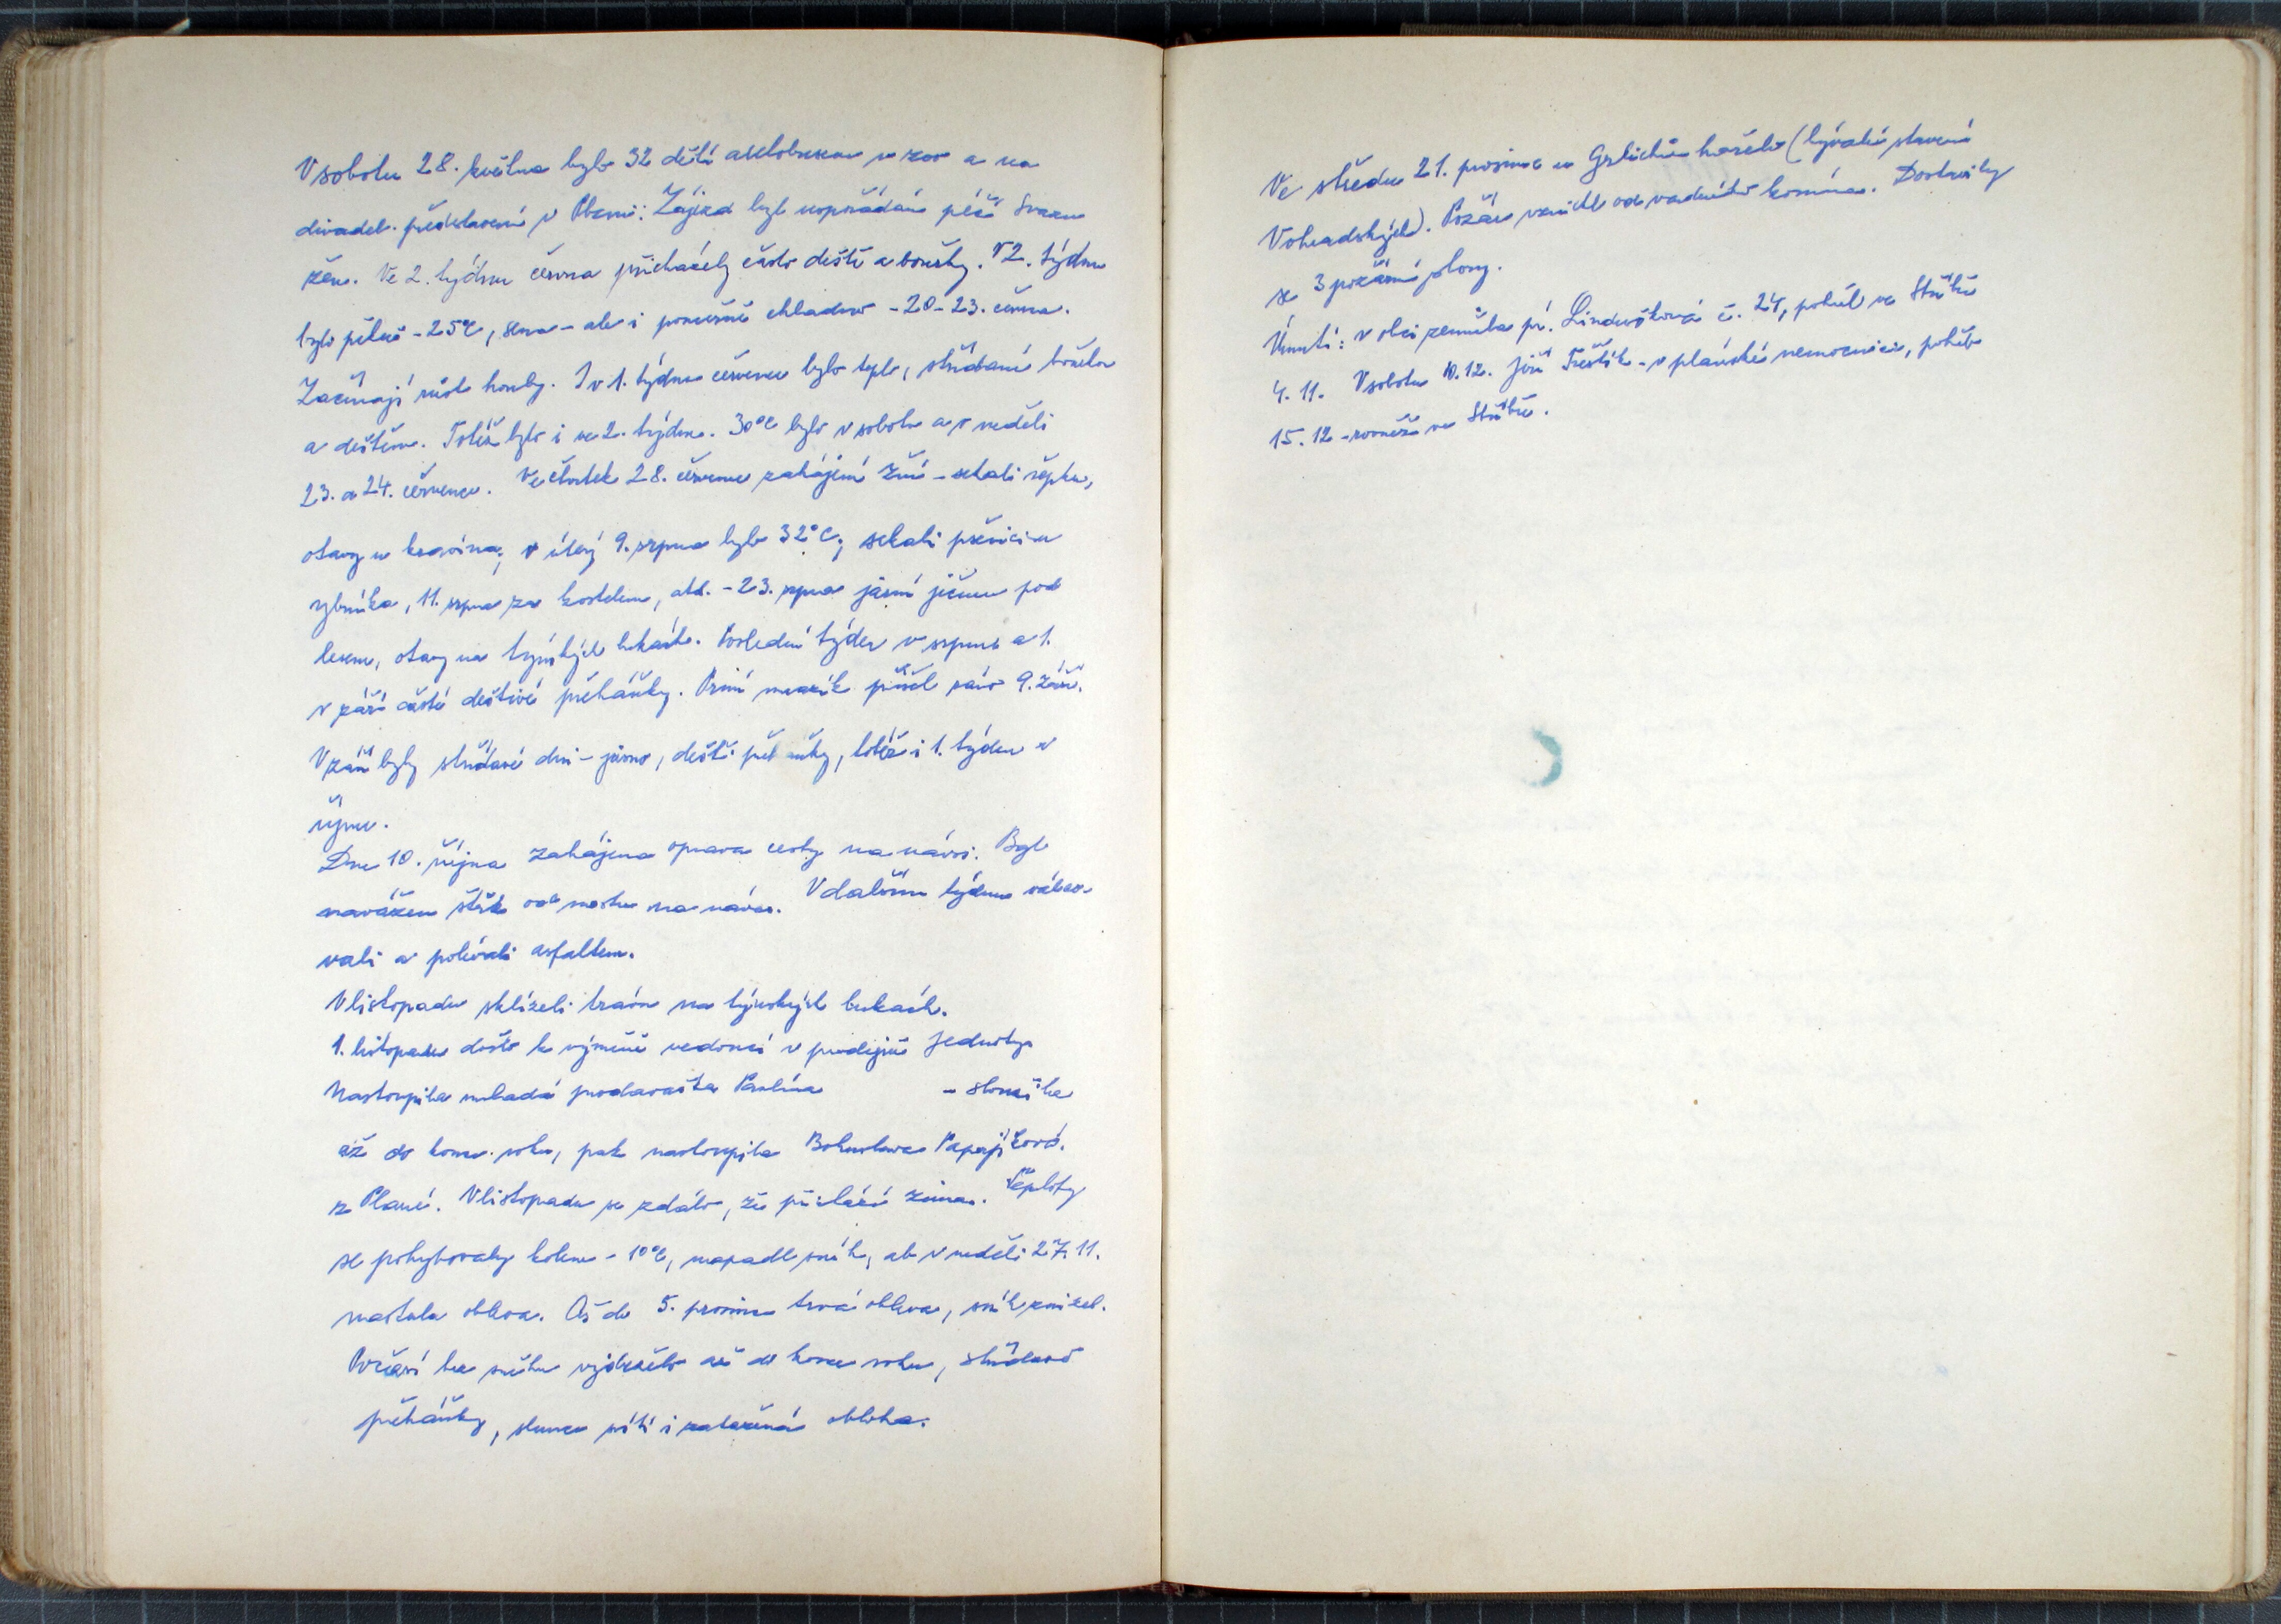 V sobotu 28. května bylo 32 dětí autobusem v zoo a na
divadel. představení v Plzni. Zájezd byl uspořádán péčí Svazu
žen. Ve 2. týdnu června přicházely často deště a bouřky. V 2. týdnu
bylo pěkně - 25°C, sena - ale i poměrně chladno - 20.-23. června.
Začínají růst houby. I v 1. týdnu července bylo teplo, střídané bouřkou
a deštěm. Totéž bylo i ve 2. týdnu. 30°C bylo v sobotu a v neděli
23. a 24. července. Ve čtvrtek 28. července zahájení žní - sekali řepku,
otavy u kravína, v úterý 9. srpna bylo 32°C, sekali pšenici u
rybníka, 11. srpna za kostelem, atd. - 23. srpna jarní ječmen pod
lesem, otavy na týnských lukách. Poslední týden v srpnu a 1.
v září časté deštivé přeháňky. První mrazík přišel ráno 9. září.
V září byly střídavé dni - jasno, deště, přeháňky, totéž i 1. týden v
říjnu.
Dne 10. října zahájena oprava cesty na návsi. Byl
navážen štěrk od mostu na náves. V dalším týdnu válco-
vali a polévali asfaltem.
V listopadu sklízeli trávu na týnských lukách.
1. listopadu došlo k výměně vedoucí v prodejně Jednoty.
Nastoupila mladá prodavačka Pavlína - sloužila
až do konce roku, pak nastoupila Bohuslava Papajíková
z Plané. V listopadu se zdálo, že přichází zima. Teploty
se pohybovaly kolem - 10°C, napadl sníh, ale v neděli 27. 11.
nastala obleva. Až do 5. prosince trvá obleva, sníh zmizel.
Počasí bez sněhu vydrželo až do konce roku, střídavě
přeháňky, slunce svítí i zatažená obloha.
Ve středu 21. prosince u Grlichů hořelo (bývalé stavení
Vohradských). Požár vznikl od vadného komína. Dostavily
se 3 požární sbory.
Úmrtí: v obci zemřela pí. Lindušková č. 24, pohřeb ve Stříbře
4. 11. V sobotu 10. 12. Jiří Treštík - v plánské nemocnici, pohřeb
15. 12 - rovněž ve Stříbře.